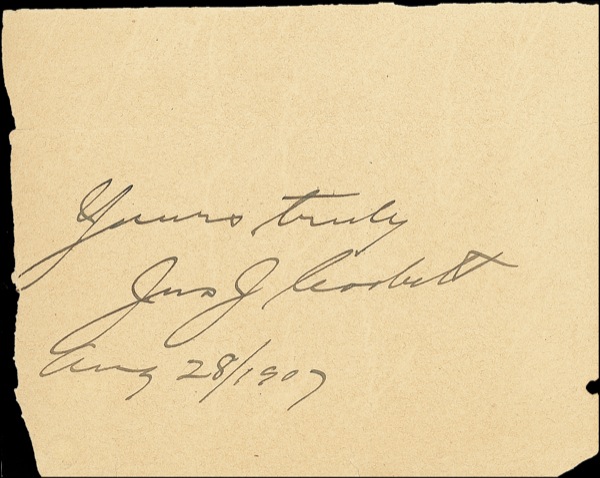 Yours truly
Jas J Corbett
Aug 28/1907